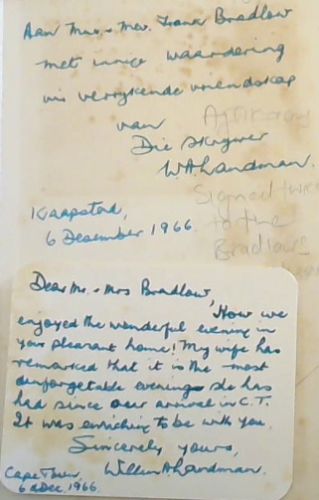 Aan Mnr. & Mev. Frank Bradlow
met innige waardering
vir verrykende vriendskap
van
Die Skrywer
W.A. Landman.
Signed twice
to the
Bradlows
Kaapstad,
6 Desember 1966.
Dear Mr. & Mrs Bradlow,
How we
enjoyed the wonderful evening in
your pleasant home! My wife has
remarked that it is the most
unforgetable evening she has
had since our arrival in C.T.
It was enriching to be with you.
Sincerely yours,
Willem A Landman.
Cape Town,
6 Dec. 1966.